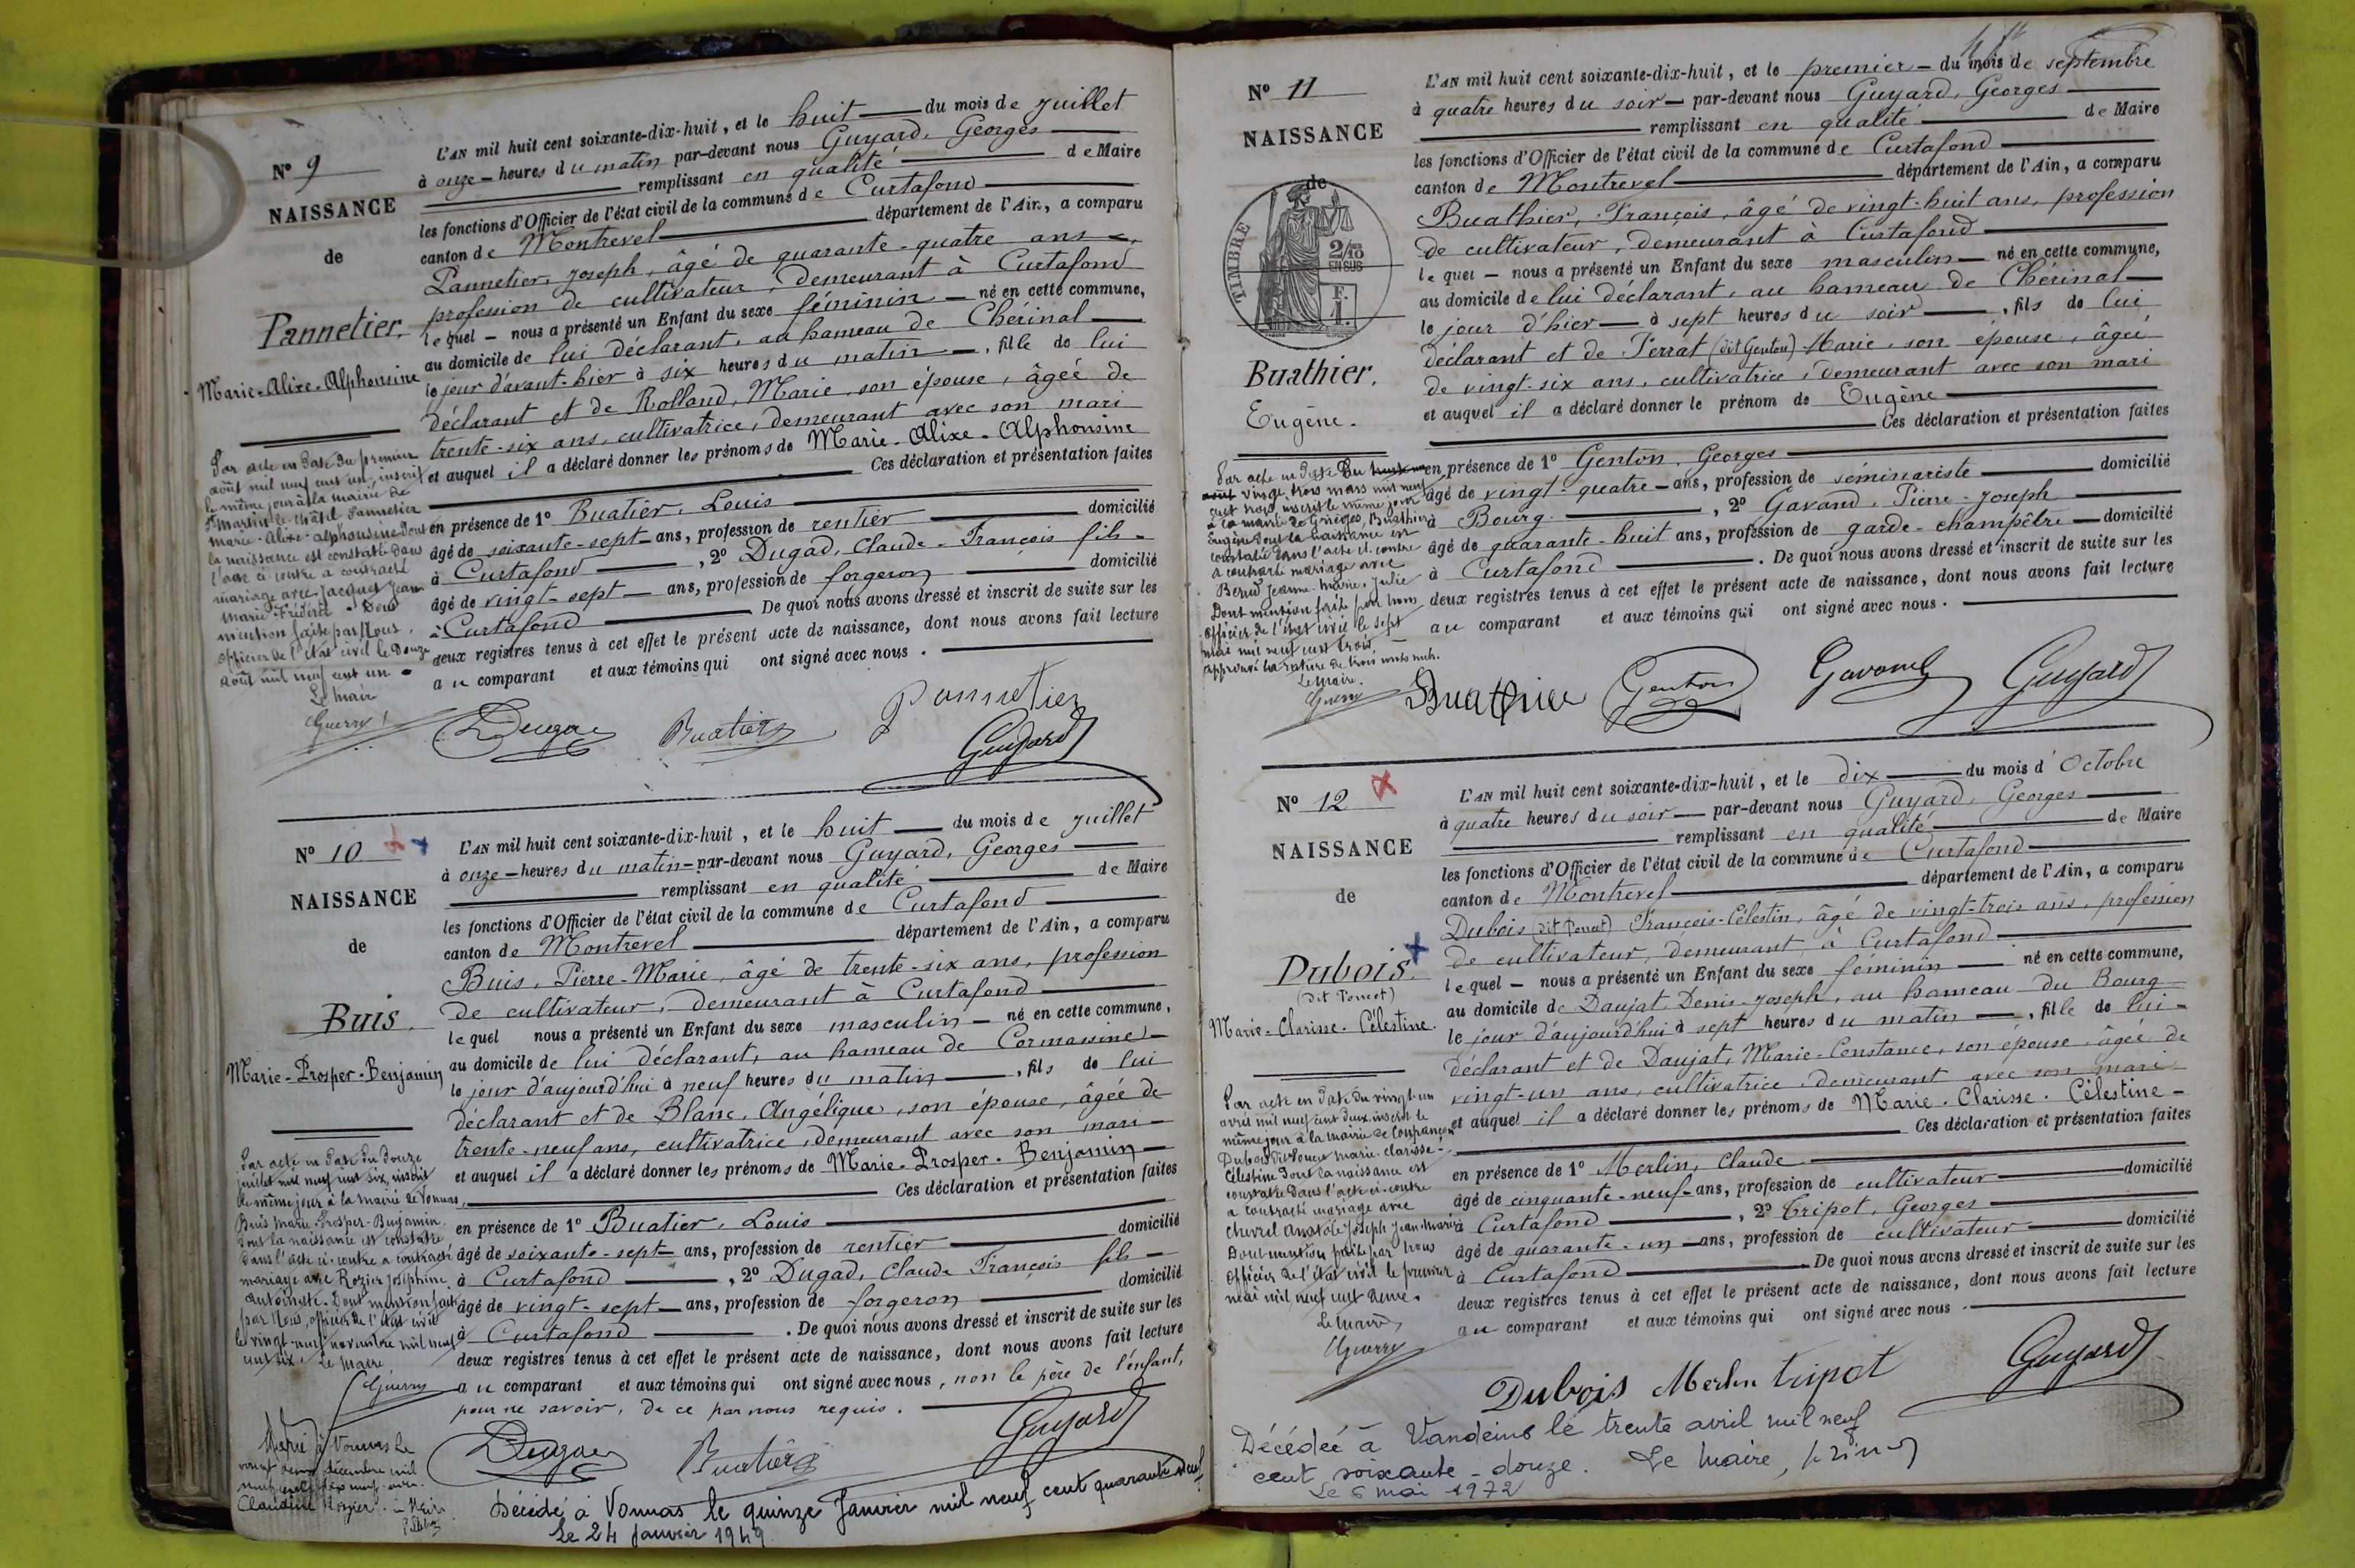 Nº 9
NAISSANCE
de
Pannetier.
Marie-Alixe-Alphonsine
L'AN mil huit cent soixante-dix-huit, et le huit du mois de juillet
à onze heures du matin par-devant nous Guyard, Georges
remplissant en qualité de Maire
les fonctions d'Officier de l'état civil de la commune de Curtafond
canton de Montrevel département de l'Ain, a comparu
Pannetier, Joseph, âgé de quarante-quatre ans,
profession de cultivateur, demeurant à Curtafond
lequel nous a présenté un Enfant du sexe féminin né en cette commune,
au domicile de lui déclarant, au hameau de Chérinal
le jour d'avant-hier à six heures du matin, fille de lui
déclarant et de Rolland, Marie, son épouse, âgée de
trente-six ans, cultivatrice, demeurant avec son mari
et auquel il a déclaré donner les prénoms de Marie-Alixe-Alphonsine
Ces déclaration et présentation faites
en présence de 1º Buatier, Louis
âgé de soixante-sept ans, profession de rentier domicilié
à Curtafond, 2º Dugad, Claude-François fils
âgé de vingt-sept ans, profession de forgeron domicilié
à Curtafond De quoi nous avons dressé et inscrit de suite sur les
deux registres tenus à cet effet le présent acte de naissance, dont nous avons fait lecture
au comparant et aux témoins qui ont signé avec nous.
Par acte en date du premier
août mil neuf cent un, inscrit
le même jour à la mairie de
St Martin-le-Châtel Pannetier
Marie-Alixe-Alphonsine dont
la naissance est constatée dans
l'acte ci-contre a contracté
mariage avec Jacquet Jean
Marie Frédéric. Dont
mention faite par Nous,
officier de l'état civil le douze
août mil neuf cent un
Le Maire
Guerry
Dugad Buatier Pannetier
Guyard
Nº 10
NAISSANCE
de
Buis.
Marie-Prosper-Benjamin
L'AN mil huit cent soixante-dix-huit, et le huit du mois de juillet
à onze heures du matin par-devant nous Guyard, Georges
remplissant en qualité de Maire
les fonctions d'Officier de l'état civil de la commune de Curtafond
canton de Montrevel département de l'Ain, a comparu
Buis, Pierre-Marie, âgé de trente-six ans, profession
de cultivateur, demeurant à Curtafond
lequel nous a présenté un Enfant du sexe masculin né en cette commune,
au domicile de lui déclarant, au hameau de Cormassine
le jour d'aujourd'hui à neuf heures du matin, fils de lui
déclarant et de Blanc, Angélique, son épouse, âgée de
trente-neuf ans, cultivatrice, demeurant avec son mari
et auquel il a déclaré donner les prénoms de Marie-Prosper-Benjamin
Ces déclaration et présentation faites
en présence de 1º Buatier, Louis
âgé de soixante-sept ans, profession de rentier domicilié
à Curtafond, 2º Dugad, Claude François fils
âgé de vingt-sept ans, profession de forgeron domicilié
à Curtafond. De quoi nous avons dressé et inscrit de suite sur les
deux registres tenus à cet effet le présent acte de naissance, dont nous avons fait lecture
au comparant et aux témoins qui ont signé avec nous, non le père de l'enfant,
pour ne savoir, de ce par nous requis.
Par acte en date du douze
juillet mil neuf cent six, inscrit
le même jour à la mairie de Vonnas,
Buis Marie-Prosper-Benjamin
dont la naissance est constatée
dans l'acte ci-contre a contracté
mariage avec Rozier Joséphine
Antoinette. Dont mention faite
par Nous, officier de l'état civil
le vingt-neuf novembre mil neuf
cent six. Le Maire
Guerry
Marié à Vonnas le
décembre mil
neuf cent dix neuf avec
Claudine Rozier.
Dugad Buatier Guyard
Décédé à Vonnas le quinze Janvier mil neuf cent quarante neuf
Le 24 Janvier 1949.
Nº 11
NAISSANCE
de
TIMBRE
2/10
EN SUS
Buathier.
Eugène.
L'AN mil huit cent soixante-dix-huit, et le premier du mois de septembre
à quatre heures du soir par-devant nous Guyard, Georges
remplissant en qualité de Maire
les fonctions d'Officier de l'état civil de la commune de Curtafond
canton de Montrevel département de l'Ain, a comparu
Buathier, François, âgé de vingt-huit ans, profession
de cultivateur, demeurant à Curtafond
lequel nous a présenté un Enfant du sexe masculin né en cette commune,
au domicile de lui déclarant, au hameau de Chérinal
le jour d'hier à sept heures du soir, fils de lui
déclarant et de Perrat (dit Genton) Marie, son épouse, âgée
de vingt-six ans, cultivatrice, demeurant avec son mari
et auquel il a déclaré donner le prénom de Eugène
Ces déclaration et présentation faites
en présence de 1º Genton, Georges
âgé de vingt-quatre ans, profession de séminariste domicilié
à Bourg, 2º Gavand, Pierre-Joseph
âgé de quarante-huit ans, profession de garde-champêtre domicilié
à Curtafond. De quoi nous avons dressé et inscrit de suite sur les
deux registres tenus à cet effet le présent acte de naissance, dont nous avons fait lecture
au comparant et aux témoins qui ont signé avec nous.
Par acte en date du
vingt trois mars mil neuf
cent trois inscrit le même jour
à la mairie de Grièges, Buathier
Eugène dont la naissance est
constatée dans l'acte ci-contre
a contracté mariage avec
Jeanne-Marie, Julie
Dont mention faite par nous
officier de l'état civil le sept
mai mil neuf cent trois.
Approuvé la rature de trois mots nuls.
Le Maire.
Guerry
Buathier Genton Gavand Guyard
Nº 12
NAISSANCE
de
Dubois.
(dit Poncet)
Marie-Clarisse-Célestine.
L'AN mil huit cent soixante-dix-huit, et le dix du mois d'Octobre
à quatre heures du soir par-devant nous Guyard, Georges
remplissant en qualité de Maire
les fonctions d'Officier de l'état civil de la commune de Curtafond
canton de Montrevel département de l'Ain, a comparu
Dubois (dit Poncet) François-Célestin, âgé de vingt-trois ans, profession
de cultivateur, demeurant à Curtafond
lequel nous a présenté un Enfant du sexe féminin né en cette commune,
au domicile de Daujat Denis-Joseph, au hameau du Bourg
le jour d'aujourd'hui à sept heures du matin, fille de lui
déclarant et de Daujat, Marie-Constance, son épouse, âgée de
vingt-un ans, cultivatrice demeurant avec son mari
et auquel il a déclaré donner les prénoms de Marie-Clarisse-Célestine
Ces déclaration et présentation faites
en présence de 1º Merlin, Claude
âgé de cinquante-neuf ans, profession de cultivateur domicilié
à Curtafond, 2º Tripot, Georges
âgé de quarante-un ans, profession de cultivateur domicilié
à Curtafond De quoi nous avons dressé et inscrit de suite sur les
deux registres tenus à cet effet le présent acte de naissance, dont nous avons fait lecture
au comparant et aux témoins qui ont signé avec nous.
Par acte en date du vingt-un
avril mil neuf cent deux inscrit le
même jour à la mairie de Confrançon
Dubois dit Poncet Marie-Clarisse-
Célestine dont la naissance est
constatée dans l'acte ci-contre
a contracté mariage avec
Chevrel Anatole Joseph Jean-Marie
Dont mention faite par nous
officier de l'état civil le premier
mai mil neuf cent deux.
Le Maire,
Guerry
Dubois Merlin tripot Guyard
Décédée à Vandeins le trente avril mil neuf
cent soixante-douze. Le Maire,
Le 6 mai 1972